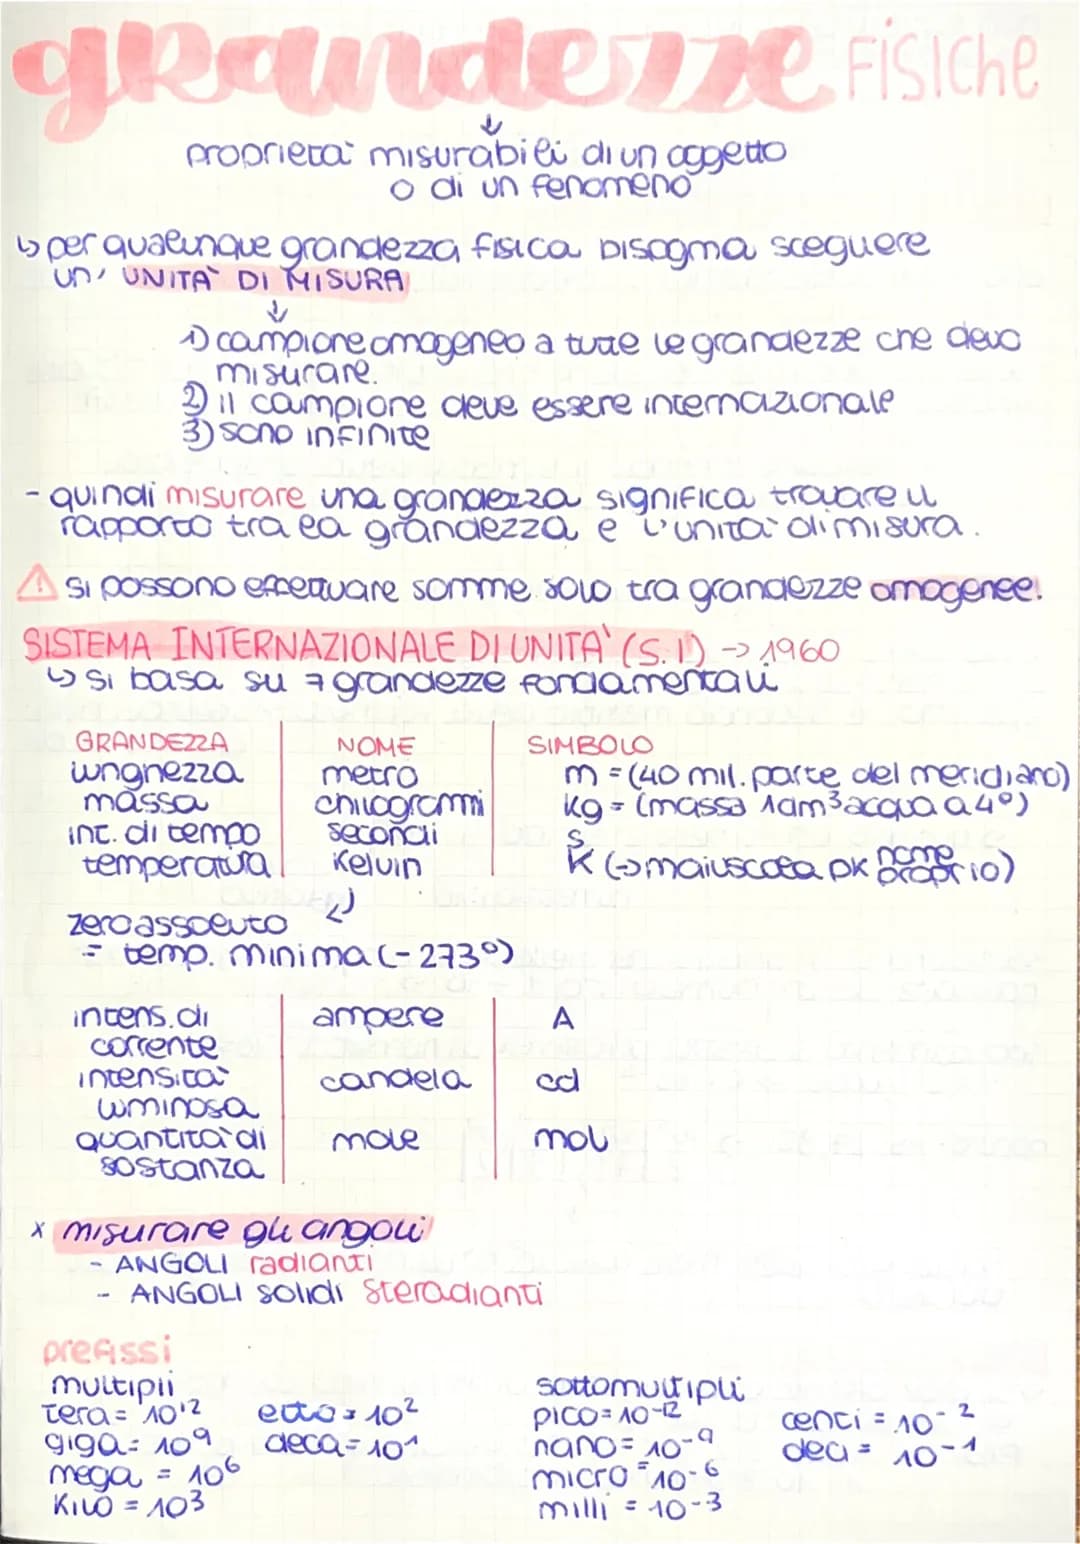 grandezze FISIChe
↓
proprietà misurabili di un oggetto
o di un fenomeno
↳ per qualunque grandezza fisica bisogna scegliere
un' UNITA' DI MISURA
↓
1) campione omogeneo a tutte le grandezze che devo
misurare.
2) il campione deve essere internazionale
3) sono infinite
- quindi misurare una grandezza significa trovare il
rapporto tra la grandezza e l'unità di misura.
⚠ si possono effettuare somme solo tra grandezze omogenee!
SISTEMA INTERNAZIONALE DI UNITA' (S.I) -> 1960
↳ si basa su 7 grandezze fondamentali
GRANDEZZA NOME SIMBOLO
lunghezza metro m = (40 mil. parte del meridiano)
massa chilogrammi kg = (massa 1dm³ acqua a 4°)
int. di tempo secondi s
temperatura Kelvin K (→ maiuscola pk nome proprio)
zero assoluto
= temp. minima (-273°)
intens. di ampere A
corrente
intensità candela cd
luminosa
quantità di mole mol
sostanza
x misurare gli angoli
- ANGOLI radianti
- ANGOLI solidi steradianti
prefissi
multipli sottomultipli
tera = 10¹² etto = 10² pico = 10⁻¹² centi = 10⁻²
giga = 10⁹ deca = 10¹ nano = 10⁻⁹ deci = 10⁻¹
mega = 10⁶ micro = 10⁻⁶
Kilo = 10³ milli = 10⁻³